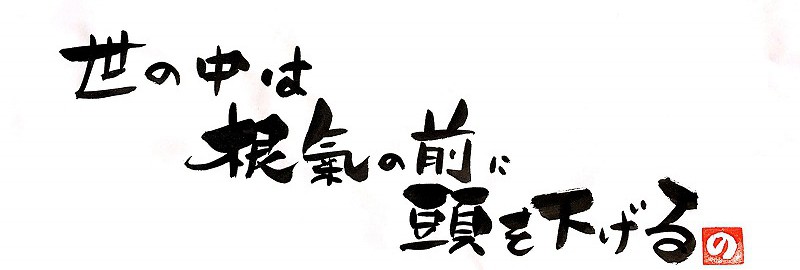 世の中は
根氣の前に
頭を下げる
の